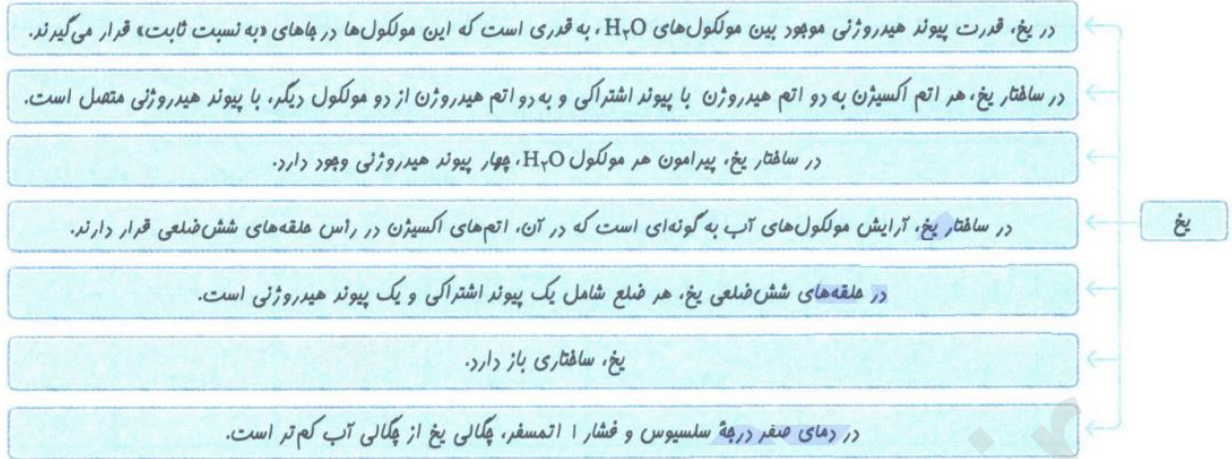 در یخ، قدرت پیوند هیدروژنی موجود بین مولکول‌های H۲O، به قدری است که این مولکول‌ها در جاهای «به نسبت ثابت» قرار می‌گیرند.
در ساختار یخ، هر اتم اکسیژن به دو اتم هیدروژن با پیوند اشتراکی و به دو اتم هیدروژن از دو مولکول دیگر، با پیوند هیدروژنی متصل است.
در ساختار یخ، پیرامون هر مولکول H۲O، چهار پیوند هیدروژنی وجود دارد.
در ساختار یخ، آرایش مولکول‌های آب به گونه‌ای است که در آن، اتم‌های اکسیژن در رأس حلقه‌های شش‌ضلعی قرار دارند.
یخ
در حلقه‌های شش‌ضلعی یخ، هر ضلع شامل یک پیوند اشتراکی و یک پیوند هیدروژنی است.
یخ، ساختاری باز دارد.
در دمای صفر درجهٔ سلسیوس و فشار ۱ اتمسفر، چگالی یخ از چگالی آب کم‌تر است.